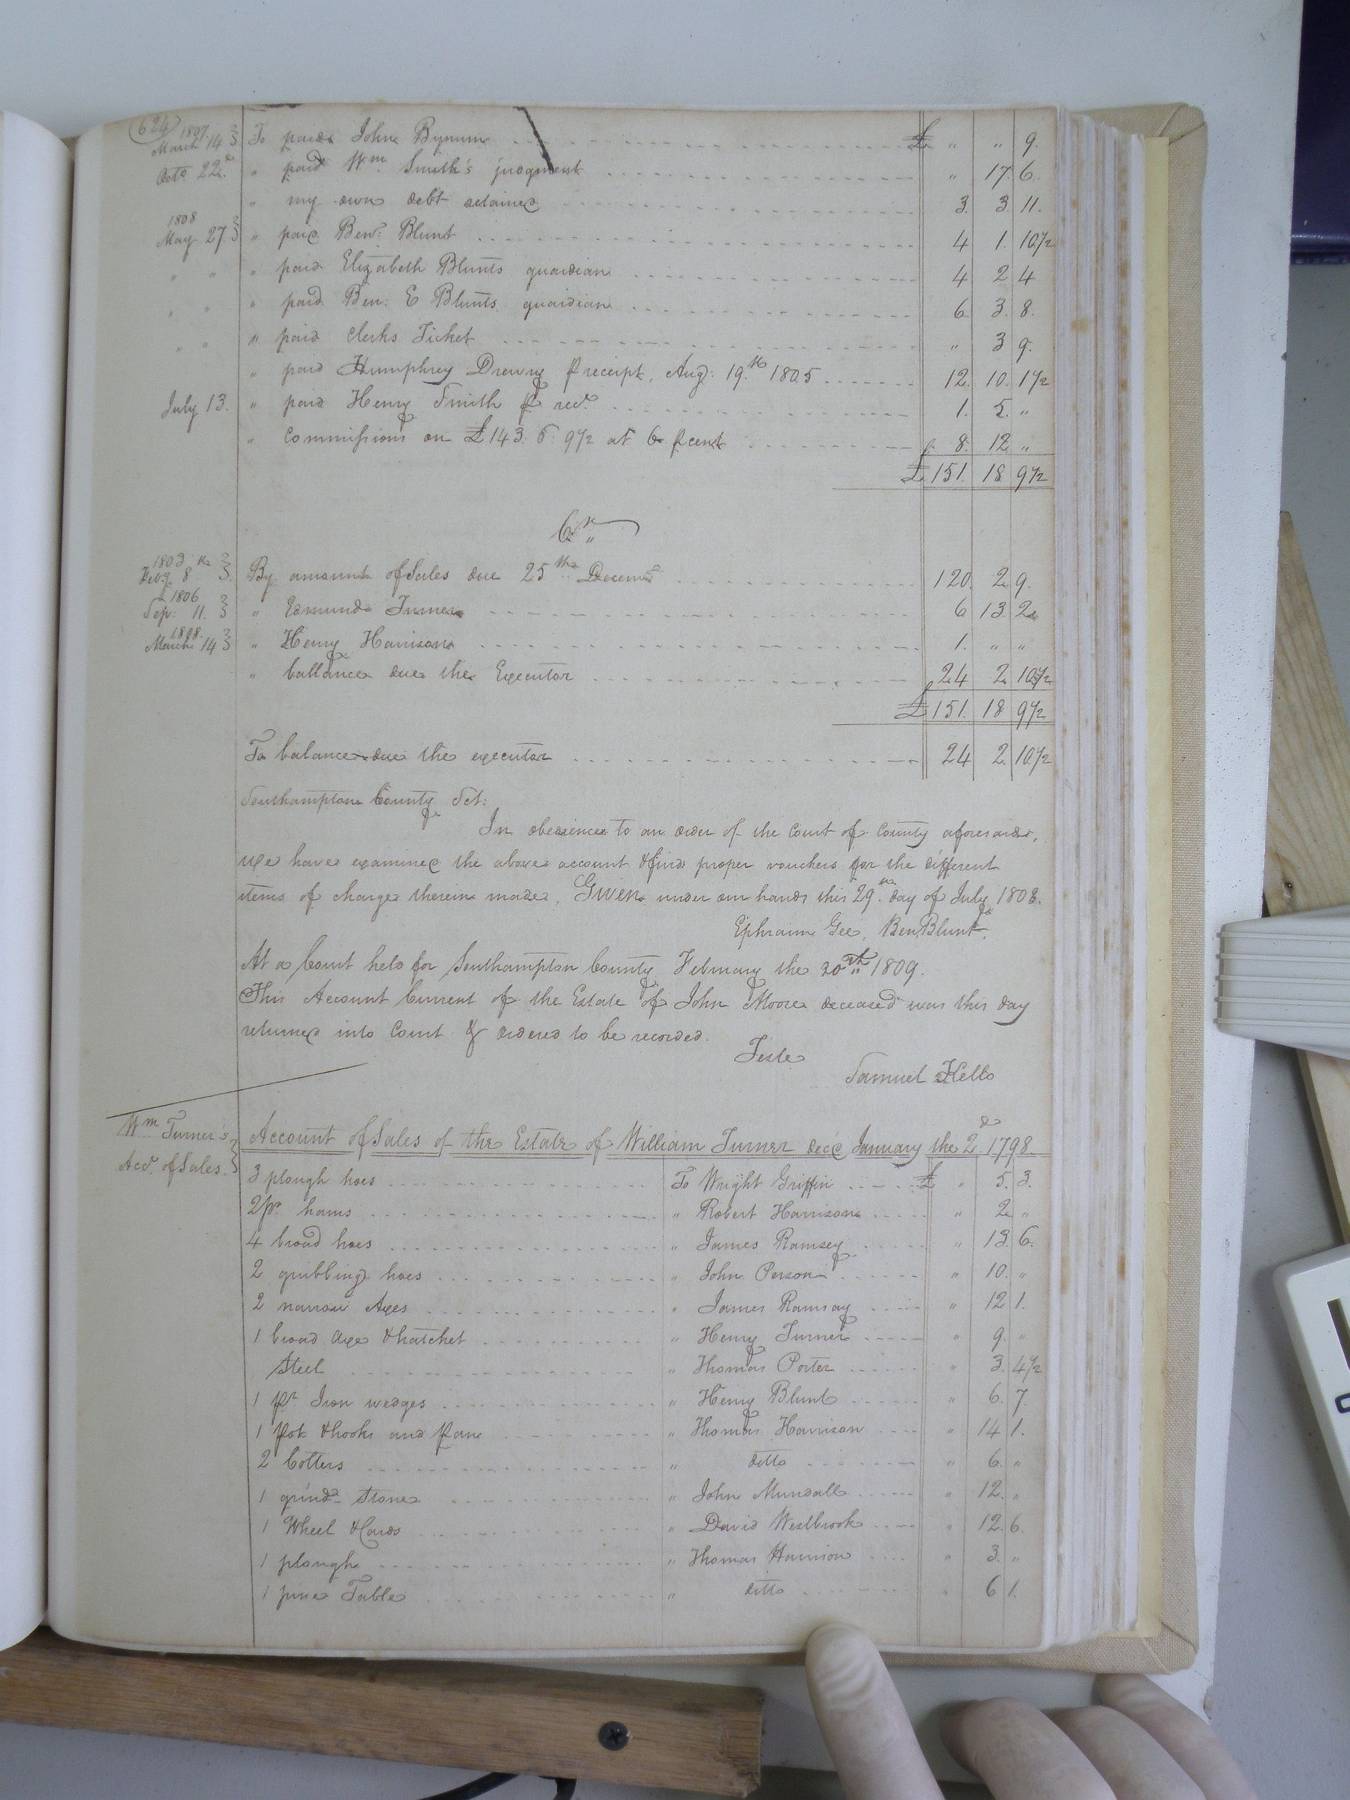 624
1807
March 14 To paid John Bynum £ " " 9.
Octo. 22d. " paid Wm. Smith's judgment " 17. 6.
" my own debt retained 3. 3. 11.
1808
May 27. " paid Benj. Blunt 4 1. 10½
" " " paid Elizabeth Blunts guardian 4 2 4
" " " paid Ben. E Blunts guardian 6 3. 8.
" " " paid Clerks Ticket " 3 9.
" paid Humphrey Drewry receipt, Aug: 19.th 1805 12. 10. 1½
July 13. " paid Henry Smith rect. 1. 5. "
" Commissions on £143. 6. 9½ at 6 cent 8. 12 "
£ 151. 18 9½
Cr.
1803
8th By amount of Sales due 25th Decem. 120. 2 9.
1806
Sep. 11. " Edmund Turner 6 13. 2
March 14 " Henry Harrison 1. " "
" ballance due the Executor 24 2 10½
£ 151. 18 9½
To balance due the executor 24 2. 10½
Southampton County Sct:
In obedience to an order of the Court of County aforesaid,
we have examined the above account & find proper vouchers for the different
items of charge therein made. Given under our hands this 29.th day of July 1808.
Ephraim Gee, Ben. Blunt.
At a Court held for Southampton County February the 20th 1809.
This Account Current of the Estate of John Moore deceased was this day
returned into Court & ordered to be recorded.
Teste
Samuel Kello
Wm Turner's Account of Sales of the Estate of William Turner decd January the 2d 1798
Acct. of Sales. 3 plough hoes To Wright Griffin £ " 5. 3.
2 pr. hams " Robert Harrison " 2. "
4 broad hoes " James Ramsey " 13. 6.
2 grubbing hoes " John Person " 10. "
2 narrow Axes " James Ramsay " 12 1.
1 broad axe & hatchet " Henry Turner " 9. "
Steel " Thomas Porter " 3. 4½
1 pr Iron wedges " Henry Blunt " 6. 7.
1 pot & hooks and pan " Thomas Harrison " 14 1.
2 Cotters " ditto " 6. "
1 grind Stone " John Mundall " 12. "
1 Wheel & Cards " David Westbrook " 12. 6.
1 plough " Thomas Harrison " 3. "
1 pine Table " ditto " 6 1.